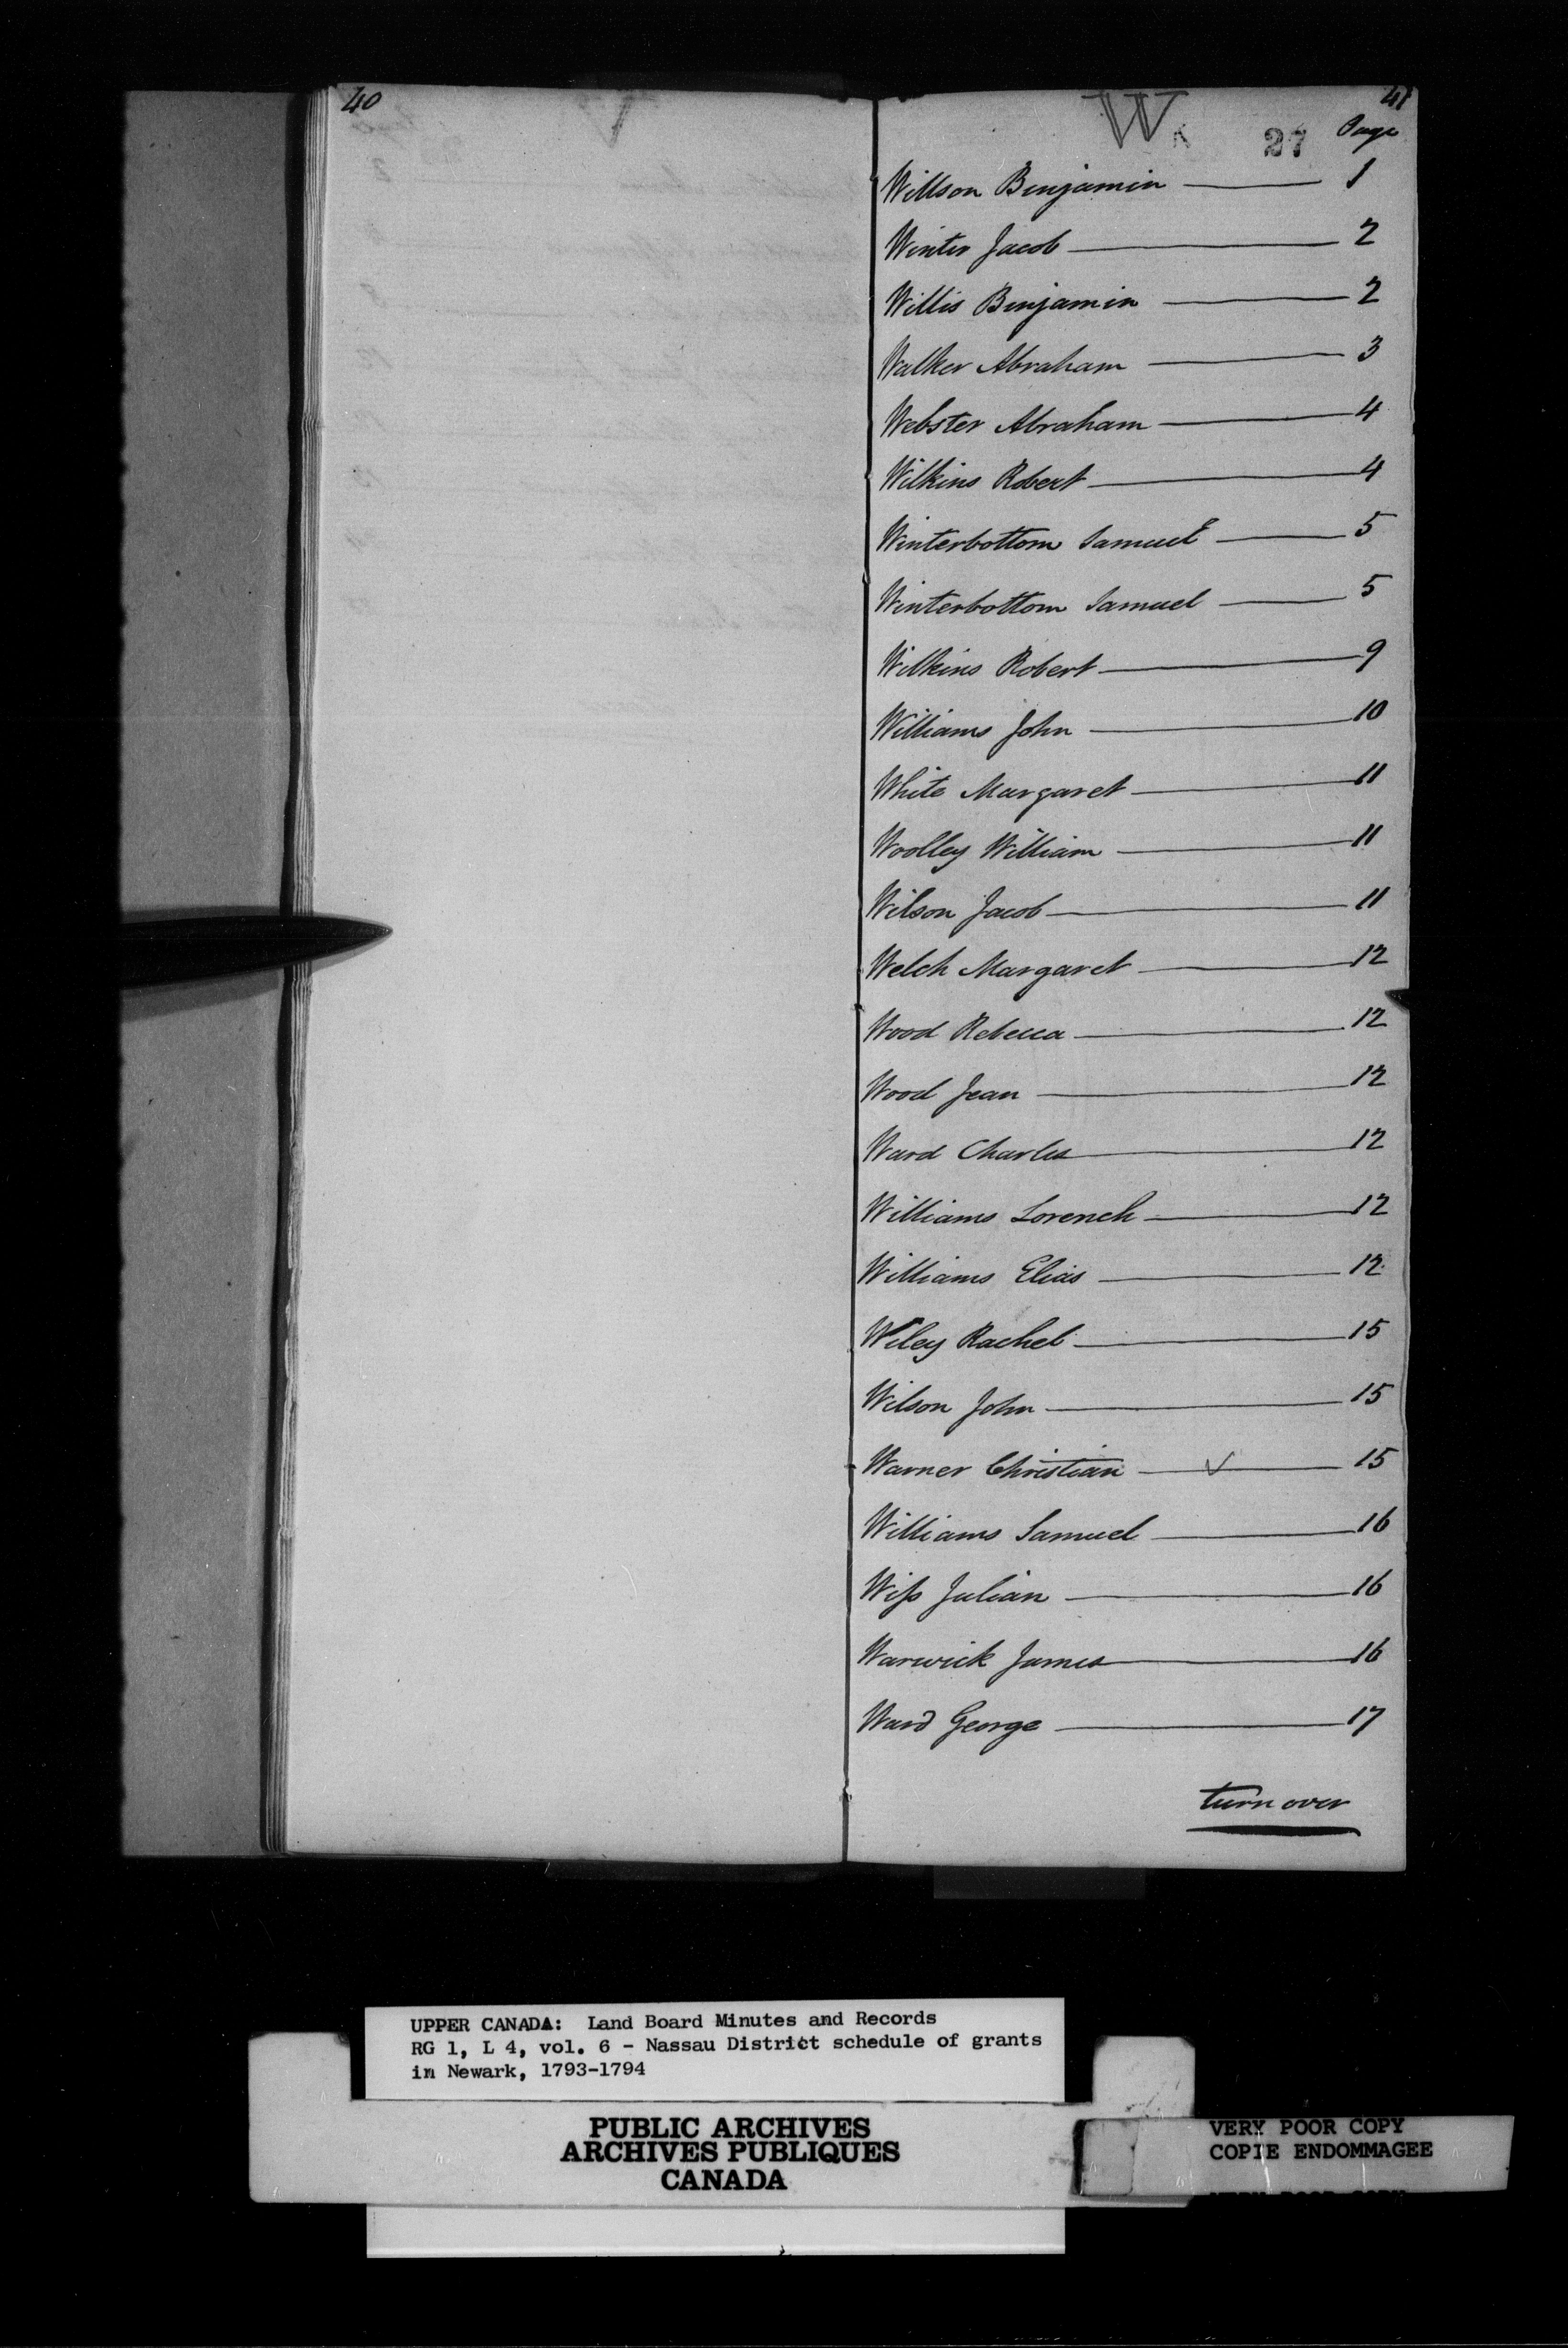 40
V
41
W
27
Page
Willson Benjamin 1
Winter Jacob 2
Willis Benjamin 2
Walker Abraham 3
Webster Abraham 4
Wilkins Robert 4
Winterbottom Samuel 5
Winterbottom Samuel 5
Wilkins Robert 9
Williams John 10
White Margaret 11
Woolley William 11
Wilson Jacob 11
Welch Margaret 12
Wood Rebecca 12
Wood Jean 12
Ward Charles 12
Williams Lorench 12
Williams Elias 12
Wiley Rachel 15
Wilson John 15
Warner Christian ✓ 15
Williams Samuel 16
Wiſs Julian 16
Warwick James 16
Ward George 17
turn over
UPPER CANADA: Land Board Minutes and Records
RG 1, L 4, vol. 6 - Nassau District schedule of grants
in Newark, 1793-1794
PUBLIC ARCHIVES
ARCHIVES PUBLIQUES
CANADA
VERY POOR COPY
COPIE ENDOMMAGEE